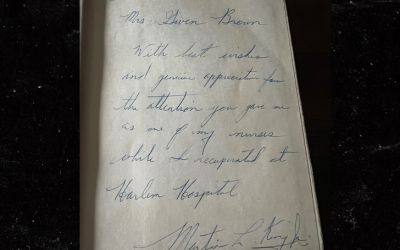 Mrs Gwen Brown
With best wishes
and genuine appreciation for
the attention you gave me
as one of my nurses
while I recuperated at
Harlem Hospital
Martin L. King Jr.